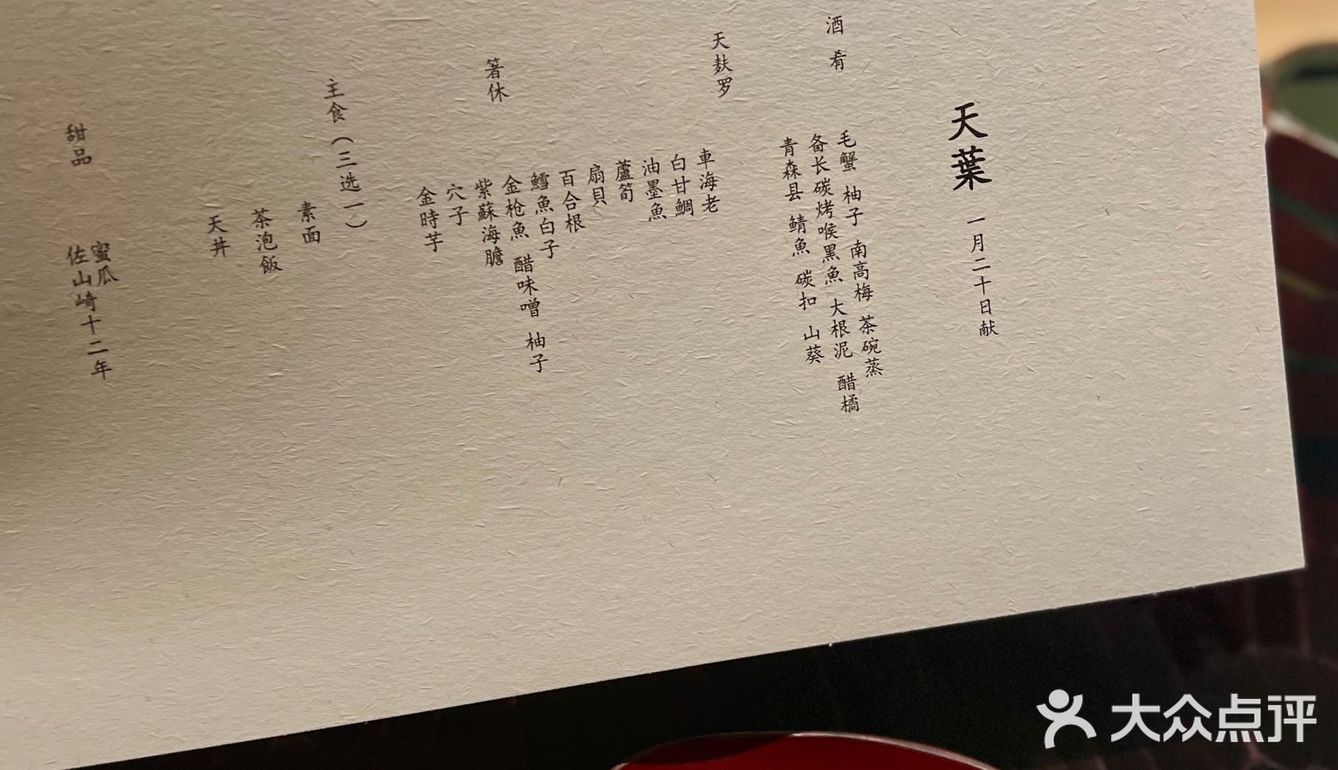 天葉 一月二十日献
酒肴
毛蟹 柚子 南高梅 茶碗蒸
备长碳烤喉黑魚 大根泥 醋橘
青森县 鯖魚 碳扣 山葵
天麸罗
車海老
白甘鯛
油墨魚
蘆筍
扇貝
百合根
鱈魚白子
箸休
金枪魚 醋味噌 柚子
紫蘇海膽
穴子
金時芋
主食（三选一）
素面
茶泡飯
天丼
甜品
蜜瓜
佐山崎十二年
大众点评